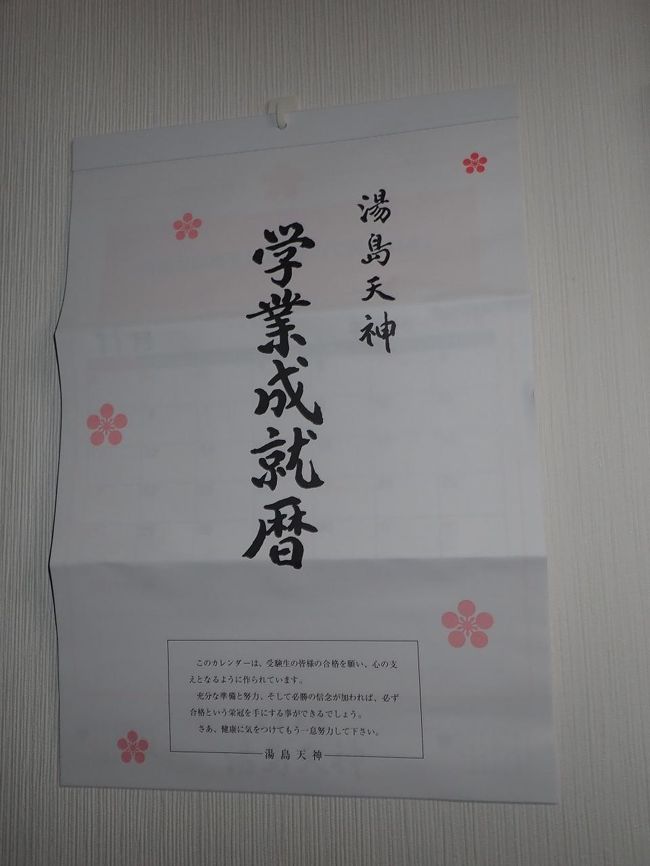 湯島天神
学業成就暦
このカレンダーは、受験生の皆様の合格を願い、心の支
えとなるように作られています。
充分な準備と努力、そして必勝の信念が加われば、必ず
合格という栄冠を手にする事ができるでしょう。
さあ、健康に気をつけてもう一息努力して下さい。
湯島天神